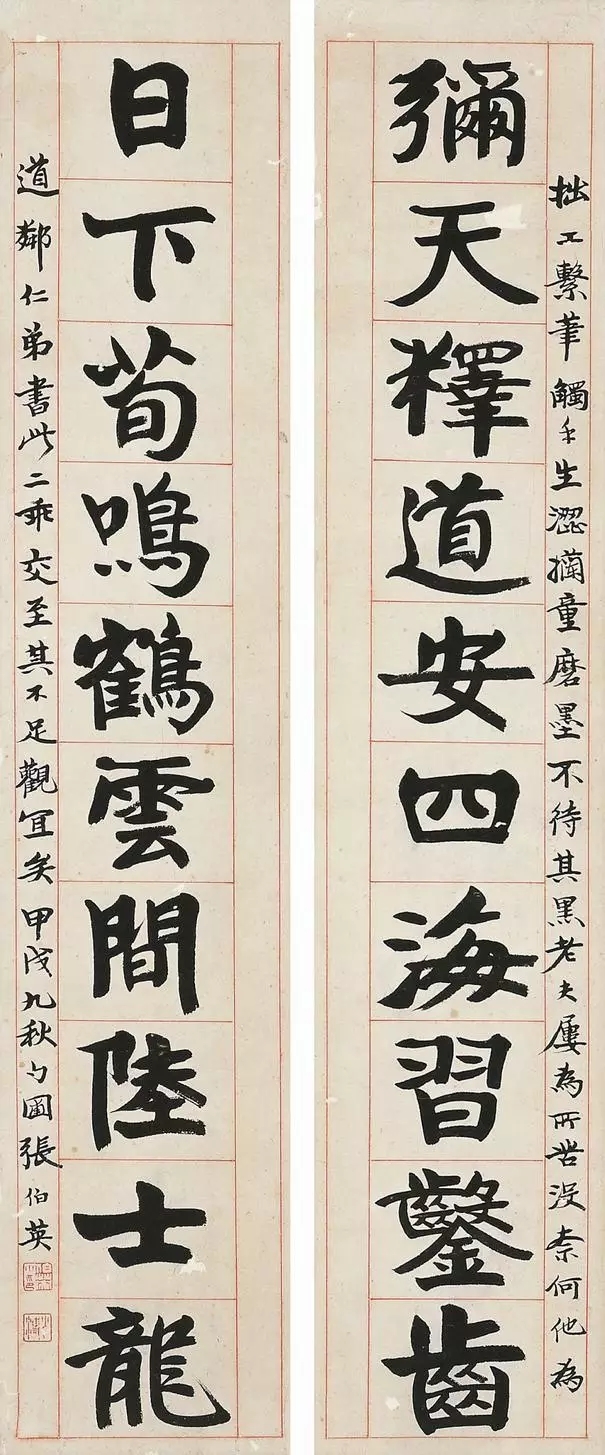 拙工繫筆觸手生澀童磨墨不待其黑老夫屢為所苦沒柰何他為
彌天釋道安四海習鑿齒
日下荀鳴鶴雲間陸士龍
道鄰仁弟書此二乖交至其不足觀宜矣甲戌九秋勺圃張伯英